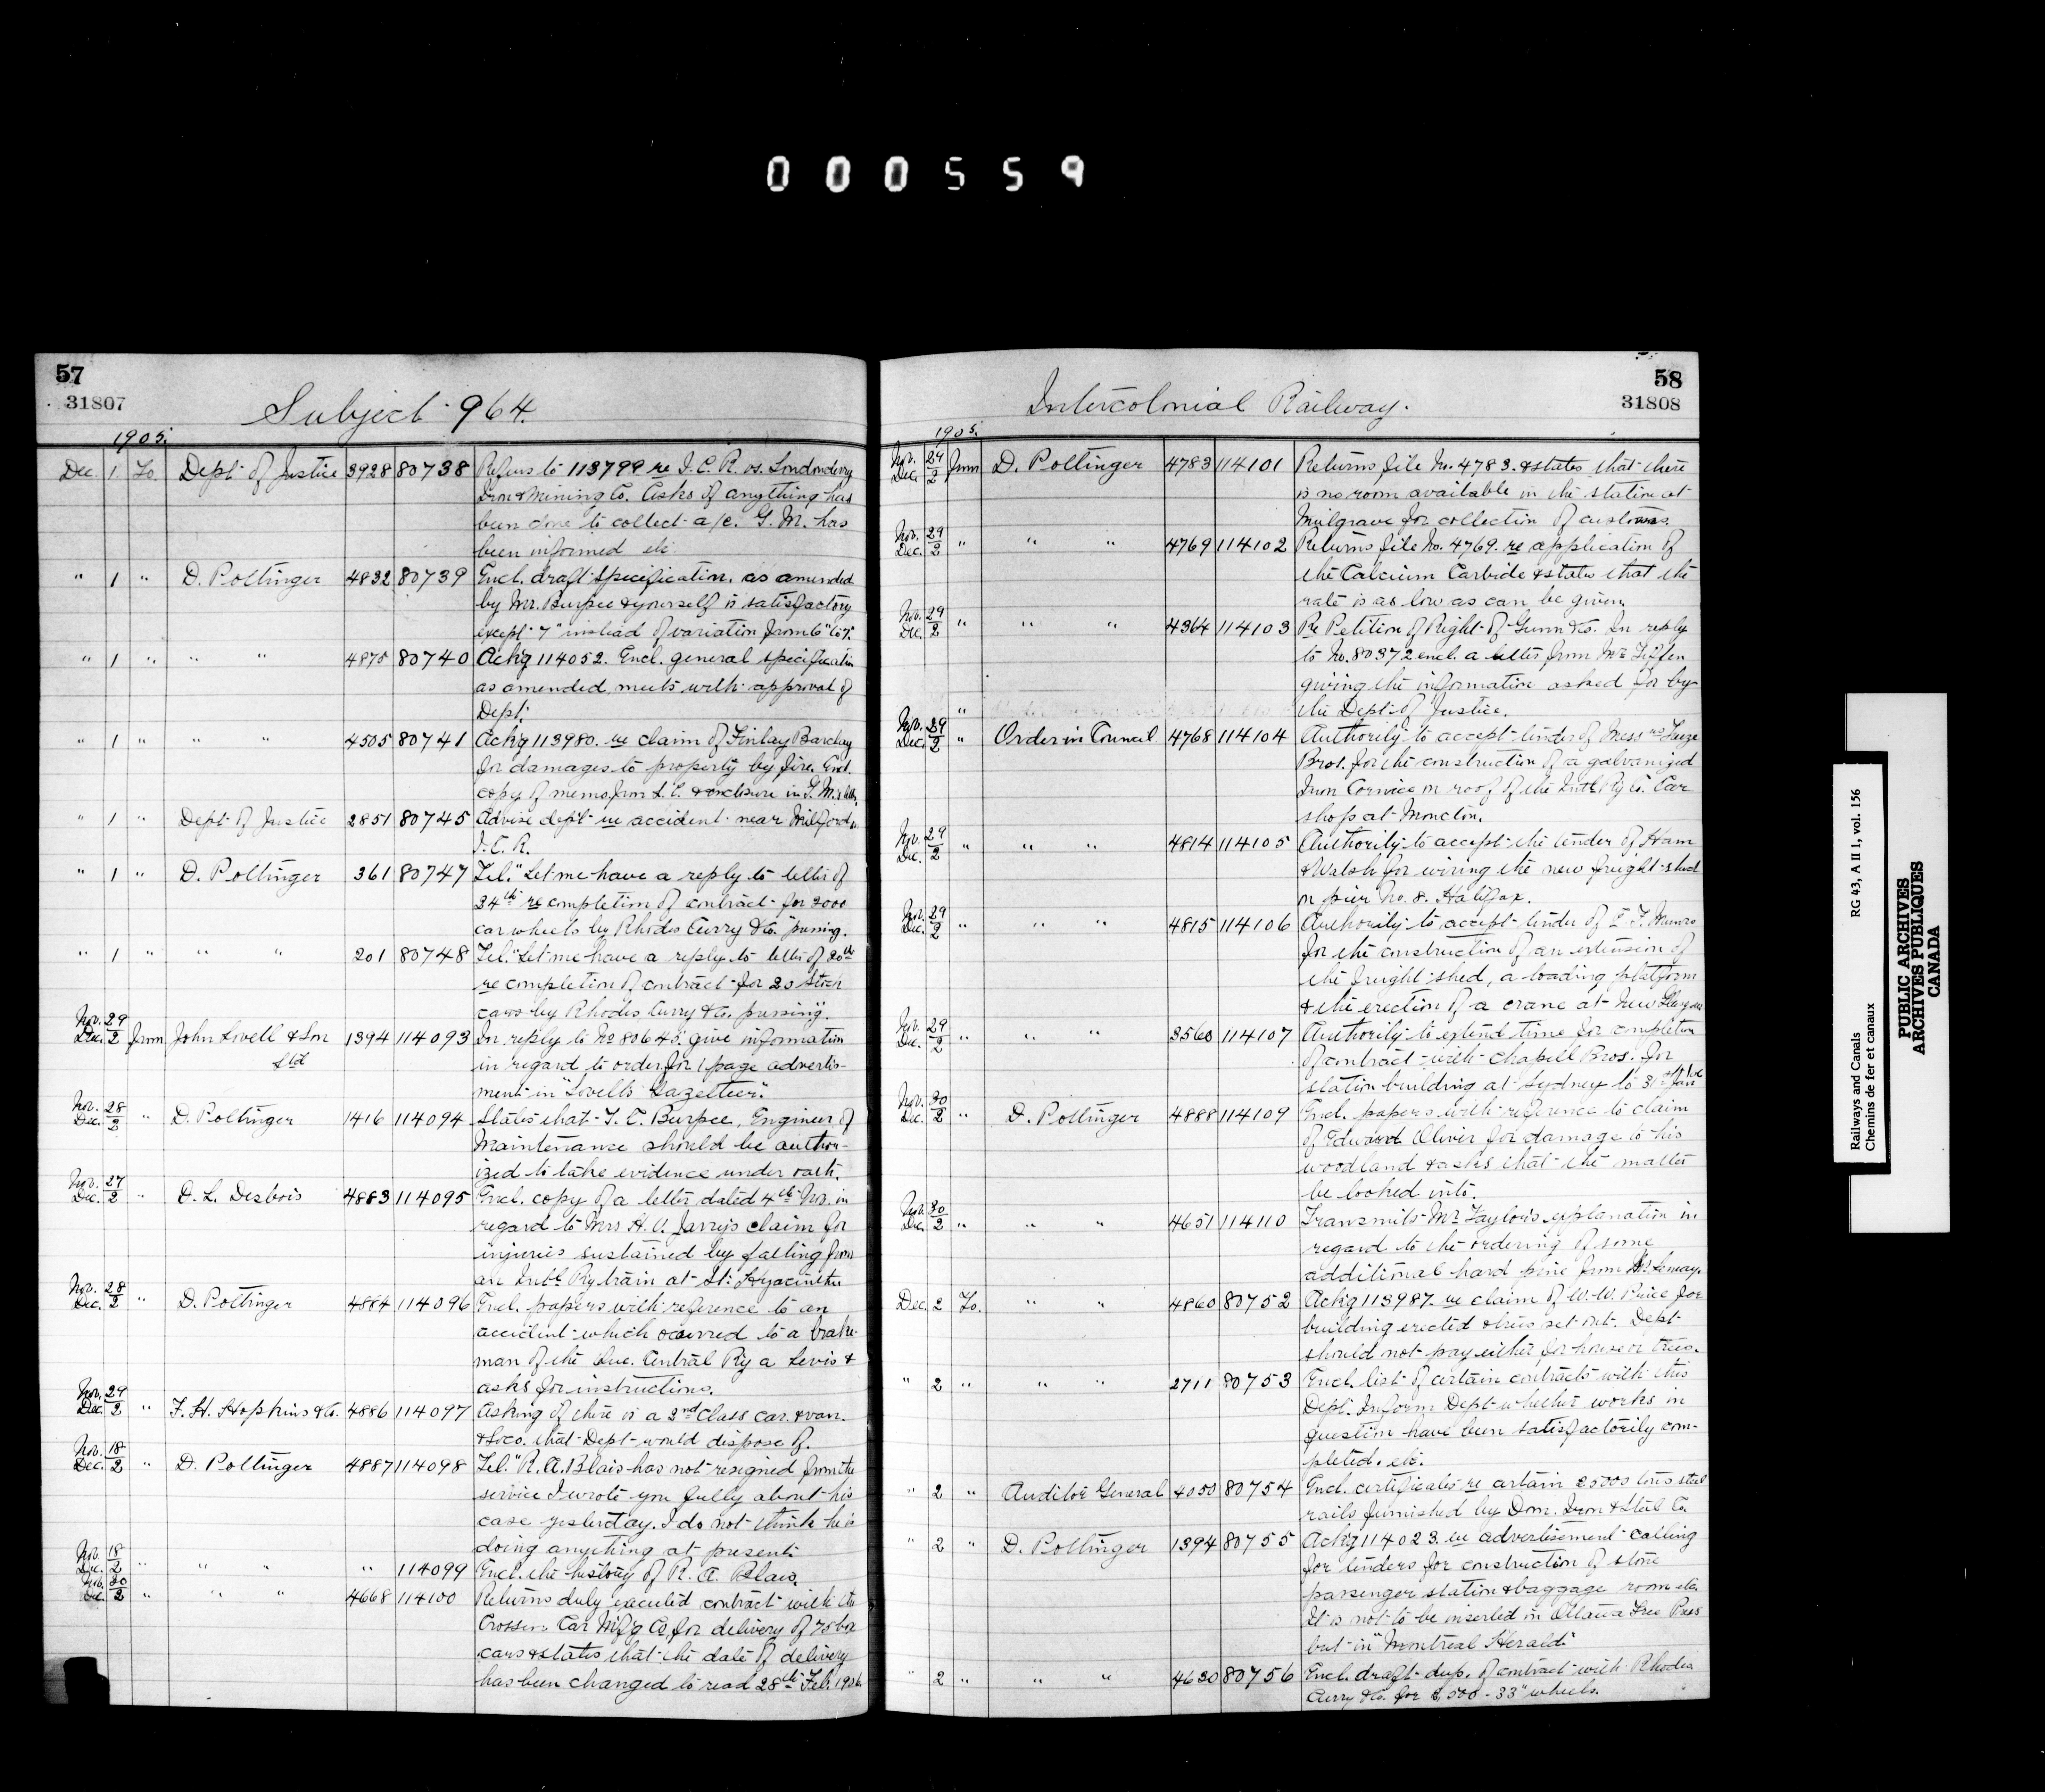 000559
57
31807
Subject 964.
1905.
Dec. 1. To. Dept of Justice 3928 80738 Refers to 113799 re I.C.R. vs. Londonderry
Iron & Mining Co. Asks if anything has
been done to collect a/c. G.M. has
been informed etc
" 1 " D. Pottinger 4832 80739 Encl. draft specification, as amended
by Mr. Burpee & yourself is satisfactory
except 7" instead of variation from 6" to 7"
" 1 " " " 4875 80740 Ackg 114052. Encl. general specification
as amended, meets with approval of
Dept.
" 1 " " " 4505 80741 Ackg 113980. re claim of Finlay Barclay
for damages to property by fire. Encl.
copy of memo. from L.C. & enclosure in G.M.'s
" 1 " Dept of Justice 2851 80745 Advise dept re accident near Milford,
I.C.R.
" 1 " D. Pottinger 361 80747 Tel. "Let me have a reply to letter of
24th re completion of contract for 2000
car wheels by Rhodes Curry & Co. pressing.
" 1 " " " 201 80748 Tel. "Let me have a reply to letter of 20th
re completion of contract for 20 stock
cars by Rhodes, Curry & Co. pressing".
Nov. 29
Dec. 2 from John Lovell & Son 1394 114093 In reply to No 80645. give information
Ltd in regard to order for 1 page advertis-
ment in "Lovell's Gazetteer".
Nov. 28
Dec. 2 " D. Pottinger 1416 114094 States that T.C. Burpee, Engineer of
Maintenance should be author-
ized to take evidence under oath.
Nov. 27
Dec. 2 " O. L. Desbois 4883 114095 Encl. copy of a letter dated 4th Nov. in
regard to Mrs H. A. Jarry's claim for
injuries sustained by falling from
an Intl. Ry train at St. Hyacinthe
Nov. 28
Dec. 2 " D. Pottinger 4884 114096 Encl. papers with reference to an
accident which occurred to a brake-
man of the Que. Central Ry a Levis &
asks for instructions.
Nov. 29
Dec. 2 " F. H. Hopkins & Co. 4886 114097 Asking if there is a 2nd Class car & van.
& Loco. that Dept would dispose of.
Nov. 18
Dec. 2 " D. Pottinger 4887 114098 Tel. "R. A. Blais has not resigned from the
service I wrote you fully about his
case yesterday. I do not think he is
doing anything at present.
Nov. 18
Dec. 2 " " " " 114099 Encl. the history of R. A. Blais.
Nov. 30
Dec. 2 " " " 4668 114100 Returns duly executed contract with the
Crossen Car Mfg Co. for delivery of 75 box
cars & states that the date of delivery
has been changed to read 28th Feb. 1906.
58
31808
Intercolonial Railway.
1905.
Nov. 29
Dec. 2 from D. Pottinger 4783 114101 Returns file No. 4783. & states that there
is no room available in the station at
Mulgrave for collection of customs.
Nov. 29
Dec. 2 " " " 4769 114102 Returns file No. 4769. re application of
the Calcium Carbide & states that the
rate is as low as can be given.
Nov. 29
Dec. 2 " " " 4364 114103 Re Petition of Right of Gunn & Co. In reply
to No. 80372 encl. a letter from Mr Tiffen
giving the information asked for by
" the Dept. of Justice.
Nov. 29
Dec. 2 " Order in Council 4768 114104 Authority to accept tender of Messrs
Bros. for the construction of a galvanized
Iron Cornice on roof of the Intl. Ry Co. Car
shops at Moncton.
Nov. 29
Dec. 2 " " " 4814 114105 Authority to accept the tender of Ham
& Walsh for wiring the new freight shed
on pier No. 8. Halifax.
Nov. 29
Dec. 2 " " " 4815 114106 Authority to accept tender of Munro
for the construction of an extension of
the freight shed, a loading platform
& the erection of a crane at New Glasgow
Nov. 29
Dec. 2 " " " 3560 114107 Authority to extend time for completion
of contract with Chapell Bros. for
station building at Sydney to 31st
Nov. 30
Dec. 2 " D. Pottinger 4888 114109 Encl. papers with reference to claim
of Edward Oliver for damage to his
woodland & asks that the matter
be looked into.
Nov. 30
Dec. 2 " " " 4651 114110 Transmits Mr Taylor's explanation in
regard to the ordering of some
additional hard pine from Mr. Lemay.
Dec. 2 To. " " 4860 80752 Ackg 113987. re claim of W. W. Price for
building erected & trees set out. Dept
should not pay either for house or trees.
" 2 " " " 2711 80753 Encl. list of certain contracts with this
Dept. Inform Dept whether works in
question have been satisfactorily com-
pleted. etc.
" 2 " Auditor General 4050 80754 Encl. certificates re certain 25000 tons steel
rails furnished by Dom. Iron & Steel Co.
" 2 " D. Pottinger 1394 80755 Ackg 114023. re advertisement calling
for tenders for construction of stone
passenger station & baggage room etc.
It is not to be inserted in Ottawa Free Press
but in "Montreal Herald".
" 2 " " " 4630 80756 Encl. draft dup. of contract with Rhodes
Curry & Co. for 2,500 - 33" wheels.
Railways and Canals RG 43, A II 1, vol. 156
Chemins de fer et canaux
PUBLIC ARCHIVES
ARCHIVES PUBLIQUES
CANADA